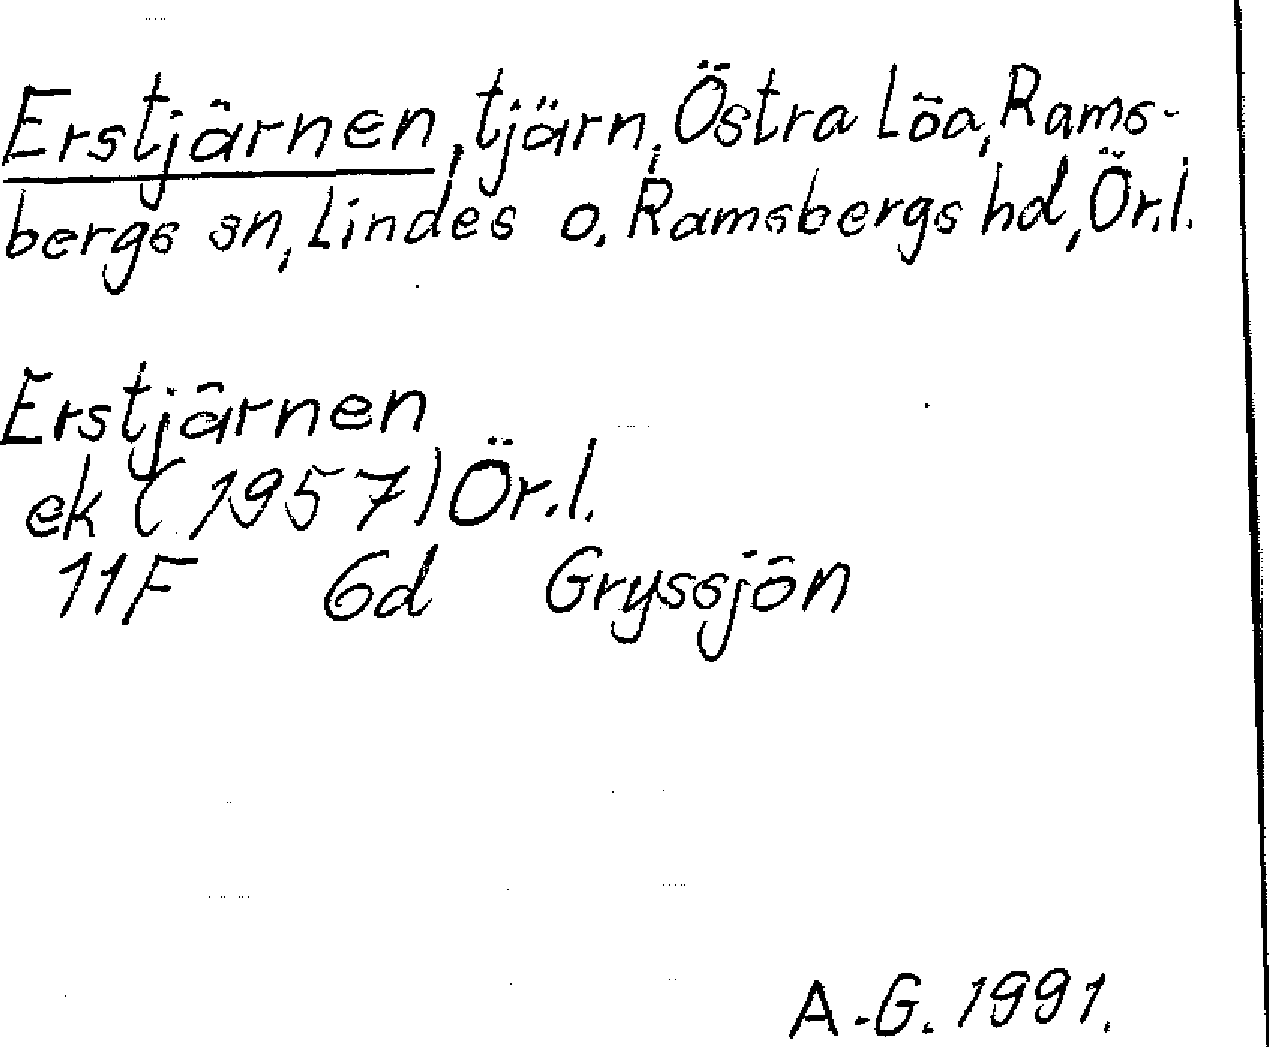 Erstjärnen, tjärn, Östra Löa, Rams-
bergs sn, Lindes o. Ramsbergs hd, Ör.l.
Erstjärnen
ek (1957) Ör.l.
11F 6d Gryssjön
A.-G. 1991.